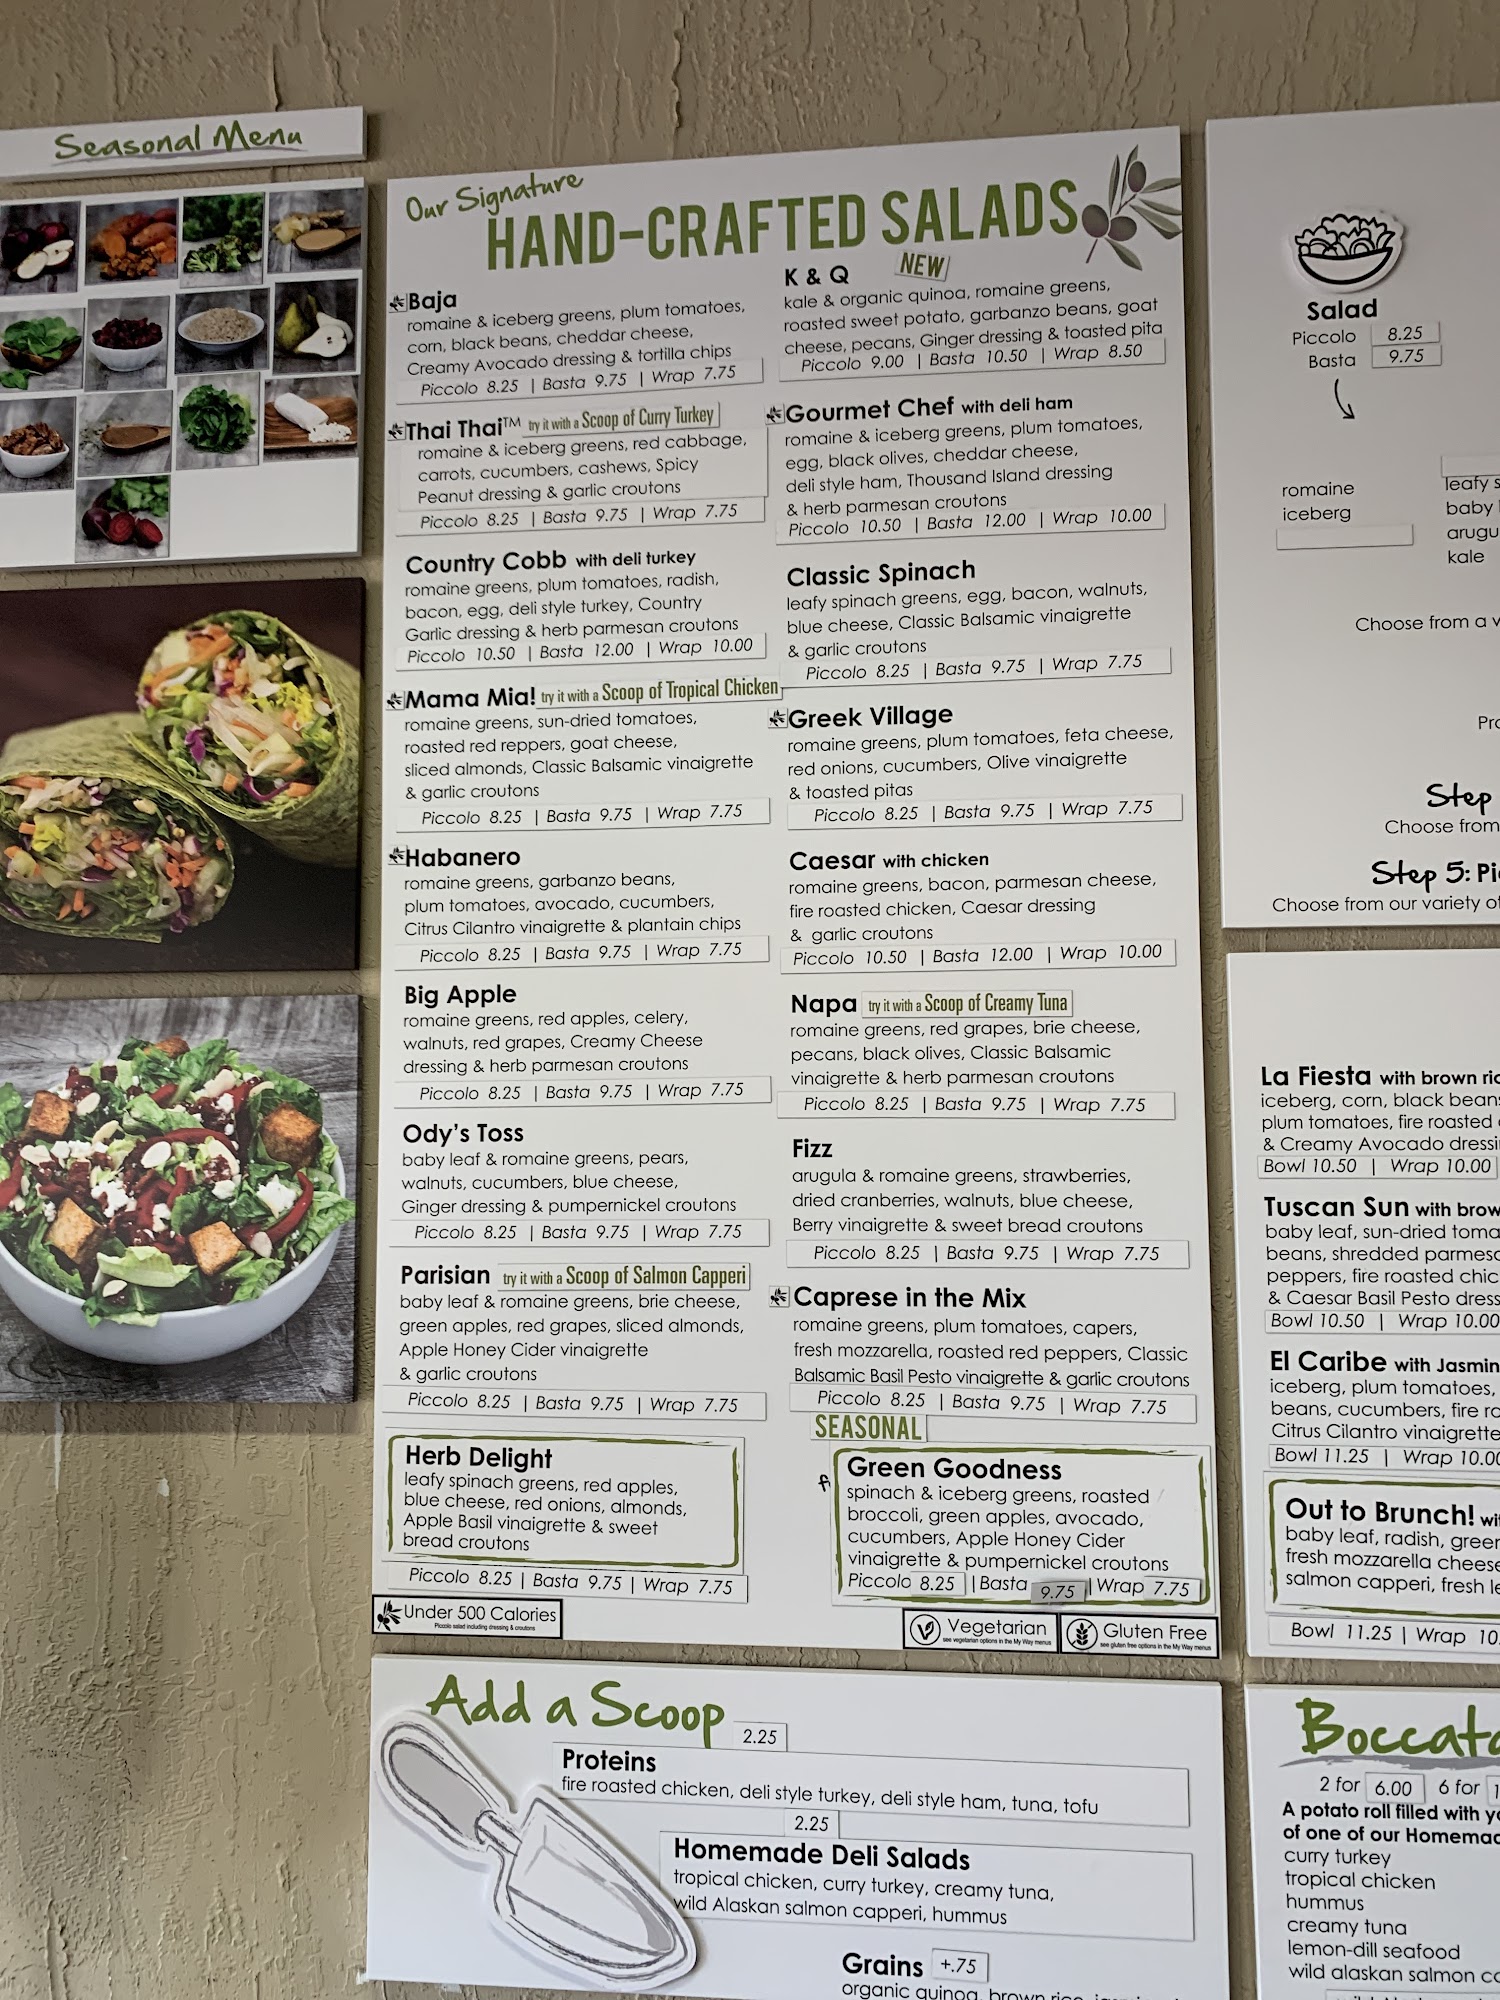 Seasonal Menu
Our Signature
HAND-CRAFTED SALADS
Baja
romaine & iceberg greens, plum tomatoes,
corn, black beans, cheddar cheese,
Creamy Avocado dressing & tortilla chips
Piccolo 8.25 | Basta 9.75 | Wrap 7.75
Thai Thai™ try it with a Scoop of Curry Turkey
romaine & iceberg greens, red cabbage,
carrots, cucumbers, cashews, Spicy
Peanut dressing & garlic croutons
Piccolo 8.25 | Basta 9.75 | Wrap 7.75
Country Cobb with deli turkey
romaine greens, plum tomatoes, radish,
bacon, egg, deli style turkey, Country
Garlic dressing & herb parmesan croutons
Piccolo 10.50 | Basta 12.00 | Wrap 10.00
Mama Mia! try it with a Scoop of Tropical Chicken
romaine greens, sun-dried tomatoes,
roasted red reppers, goat cheese,
sliced almonds, Classic Balsamic vinaigrette
& garlic croutons
Piccolo 8.25 | Basta 9.75 | Wrap 7.75
Habanero
romaine greens, garbanzo beans,
plum tomatoes, avocado, cucumbers,
Citrus Cilantro vinaigrette & plantain chips
Piccolo 8.25 | Basta 9.75 | Wrap 7.75
Big Apple
romaine greens, red apples, celery,
walnuts, red grapes, Creamy Cheese
dressing & herb parmesan croutons
Piccolo 8.25 | Basta 9.75 | Wrap 7.75
Ody's Toss
baby leaf & romaine greens, pears,
walnuts, cucumbers, blue cheese,
Ginger dressing & pumpernickel croutons
Piccolo 8.25 | Basta 9.75 | Wrap 7.75
Parisian try it with a Scoop of Salmon Capperi
baby leaf & romaine greens, brie cheese,
green apples, red grapes, sliced almonds,
Apple Honey Cider vinaigrette
& garlic croutons
Piccolo 8.25 | Basta 9.75 | Wrap 7.75
Herb Delight
leafy spinach greens, red apples,
blue cheese, red onions, almonds,
Apple Basil vinaigrette & sweet
bread croutons
Piccolo 8.25 | Basta 9.75 | Wrap 7.75
Under 500 Calories
Piccolo salad including dressing & croutons
K & Q NEW
kale & organic quinoa, romaine greens,
roasted sweet potato, garbanzo beans, goat
cheese, pecans, Ginger dressing & toasted pita
Piccolo 9.00 | Basta 10.50 | Wrap 8.50
Gourmet Chef with deli ham
romaine & iceberg greens, plum tomatoes,
egg, black olives, cheddar cheese,
deli style ham, Thousand Island dressing
& herb parmesan croutons
Piccolo 10.50 | Basta 12.00 | Wrap 10.00
Classic Spinach
leafy spinach greens, egg, bacon, walnuts,
blue cheese, Classic Balsamic vinaigrette
& garlic croutons
Piccolo 8.25 | Basta 9.75 | Wrap 7.75
Greek Village
romaine greens, plum tomatoes, feta cheese,
red onions, cucumbers, Olive vinaigrette
& toasted pitas
Piccolo 8.25 | Basta 9.75 | Wrap 7.75
Caesar with chicken
romaine greens, bacon, parmesan cheese,
fire roasted chicken, Caesar dressing
& garlic croutons
Piccolo 10.50 | Basta 12.00 | Wrap 10.00
Napa try it with a Scoop of Creamy Tuna
romaine greens, red grapes, brie cheese,
pecans, black olives, Classic Balsamic
vinaigrette & herb parmesan croutons
Piccolo 8.25 | Basta 9.75 | Wrap 7.75
Fizz
arugula & romaine greens, strawberries,
dried cranberries, walnuts, blue cheese,
Berry vinaigrette & sweet bread croutons
Piccolo 8.25 | Basta 9.75 | Wrap 7.75
Caprese in the Mix
romaine greens, plum tomatoes, capers,
fresh mozzarella, roasted red peppers, Classic
Balsamic Basil Pesto vinaigrette & garlic croutons
Piccolo 8.25 | Basta 9.75 | Wrap 7.75
SEASONAL
Green Goodness
spinach & iceberg greens, roasted
broccoli, green apples, avocado,
cucumbers, Apple Honey Cider
vinaigrette & pumpernickel croutons
Piccolo 8.25 | Basta 9.75 | Wrap 7.75
Vegetarian
see vegetarian options in the My Way menus
Gluten Free
see gluten free options in the My Way menus
Add a Scoop 2.25
Proteins
fire roasted chicken, deli style turkey, deli style ham, tuna, tofu
2.25
Homemade Deli Salads
tropical chicken, curry turkey, creamy tuna,
wild Alaskan salmon capperi, hummus
Grains +.75
organic quinoa, brown rice,
Salad
Piccolo 8.25
Basta 9.75
romaine
iceberg
leafy
baby
kale
Choose from a
Step
Choose from
Step 5:
Choose from our variety of
La Fiesta with brown
iceberg, corn, black
plum tomatoes, fire roasted
& Creamy Avocado
Bowl 10.50 | Wrap 10.00
Tuscan Sun with
baby leaf, sun-dried
beans, shredded
peppers, fire roasted
& Caesar Basil Pesto
Bowl 10.50 | Wrap 10.00
El Caribe with
iceberg, plum tomatoes,
beans, cucumbers, fire
Citrus Cilantro vinaigrette
Bowl 11.25 | Wrap
Out to Brunch!
baby leaf, radish,
fresh mozzarella
salmon capperi, fresh
Bowl 11.25 | Wrap
2 for 6.00 6 for
A potato roll filled with
of one of our
curry turkey
tropical chicken
hummus
creamy tuna
lemon-dill seafood
wild alaskan salmon